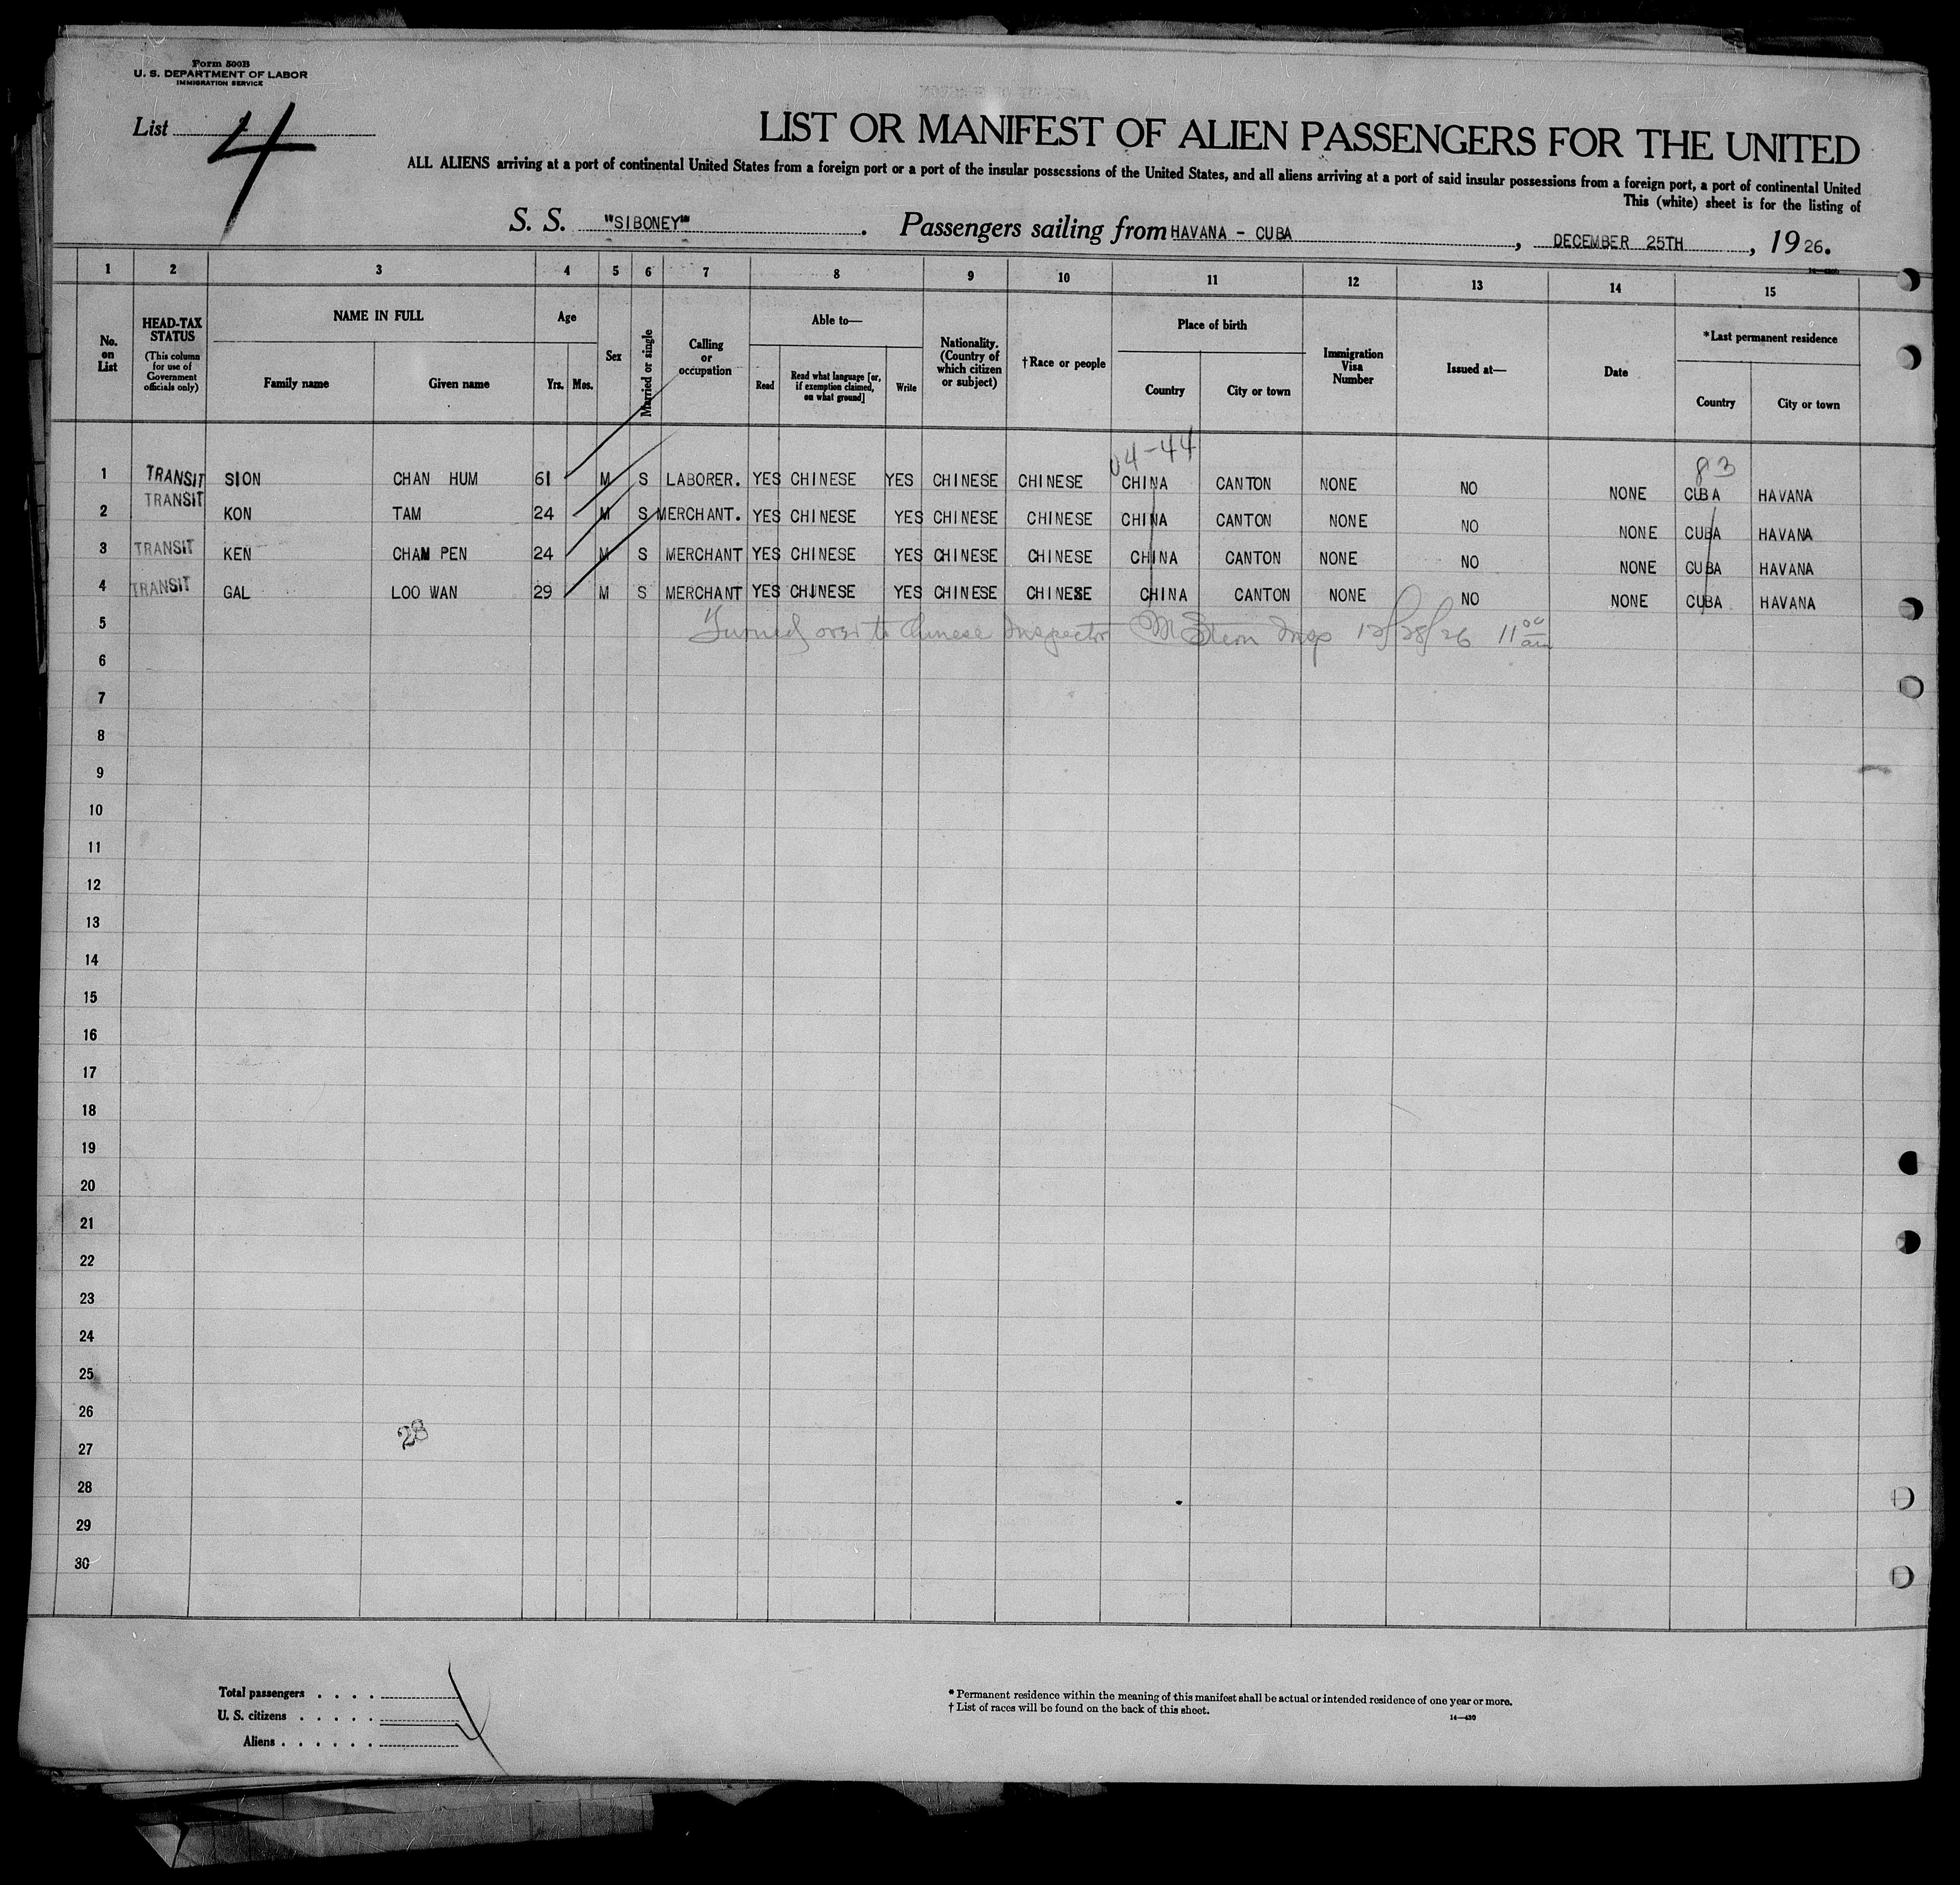 Form 500B
U. S. DEPARTMENT OF LABOR
IMMIGRATION SERVICE
List 4
LIST OR MANIFEST OF ALIEN PASSENGERS FOR THE UNITED
ALL ALIENS arriving at a port of continental United States from a foreign port or a port of the insular possessions of the United States, and all aliens arriving at a port of said insular possessions from a foreign port, a port of continental United
This (white) sheet is for the listing of
S. S. "SIBONEY" . Passengers sailing from HAVANA - CUBA , DECEMBER 25TH , 1926.
1 2 3 4 5 6 7 8 9 10 11 12 13 14 15
No. on List
HEAD-TAX STATUS
(This column for use of Government officials only)
NAME IN FULL
Family name Given name
Age
Yrs. Mos.
Sex
Married or single
Calling or occupation
Able to—
Read
Read what language [or, if exemption claimed, on what ground]
Write
Nationality. (Country of which citizen or subject)
†Race or people
Place of birth
Country City or town
Immigration Visa Number
Issued at—
Date
*Last permanent residence
Country City or town
04-44 83
1 TRANSIT SION CHAN HUM 61 M S LABORER. YES CHINESE YES CHINESE CHINESE CHINA CANTON NONE NO NONE CUBA HAVANA
2 TRANSIT KON TAM 24 M S MERCHANT. YES CHINESE YES CHINESE CHINESE CHINA CANTON NONE NO NONE CUBA HAVANA
3 TRANSIT KEN CHAM PEN 24 M S MERCHANT YES CHINESE YES CHINESE CHINESE CHINA CANTON NONE NO NONE CUBA HAVANA
4 TRANSIT GAL LOO WAN 29 M S MERCHANT YES CHINESE YES CHINESE CHINESE CHINA CANTON NONE NO NONE CUBA HAVANA
5 Turned over to Chinese Inspector M Stern Insp 12/28/26 11 00 am
6
7
8
9
10
11
12
13
14
15
16
17
18
19
20
21
22
23
24
25
26
28
27
28
29
30
Total passengers . . . .
U. S. citizens . . . . .
Aliens . . . . . .
* Permanent residence within the meaning of this manifest shall be actual or intended residence of one year or more.
† List of races will be found on the back of this sheet.
14—430